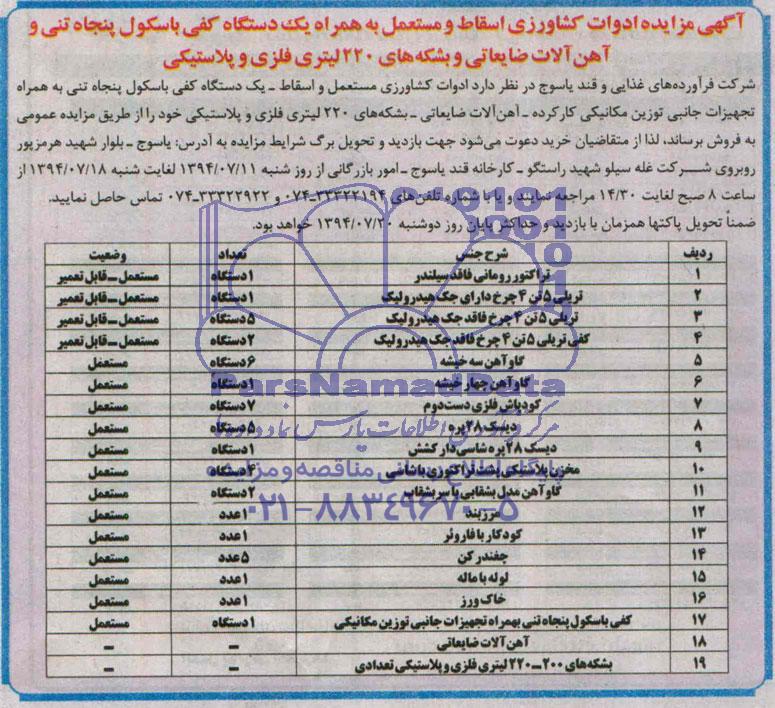 آگهی مزایده ادوات کشاورزی اسقاط و مستعمل به همراه یک دستگاه کفی باسکول پنجاه تنی و
آهن آلات ضایعاتی و بشکه‌های ۲۲۰ لیتری فلزی و پلاستیکی
شرکت فرآورده‌های غذایی و قند یاسوج در نظر دارد ادوات کشاورزی مستعمل و اسقاط ـ یک دستگاه کفی باسکول پنجاه تنی به همراه
تجهیزات جانبی توزین مکانیکی کارکرده ـ آهن‌آلات ضایعاتی ـ بشکه‌های ۲۲۰ لیتری فلزی و پلاستیکی خود را از طریق مزایده عمومی
به فروش برساند، لذا از متقاضیان خرید دعوت می‌شود جهت بازدید و تحویل برگ شرایط مزایده به آدرس: یاسوج ـ بلوار شهید هرمزپور
روبروی شرکت غله سیلو شهید راستگو ـ کارخانه قند یاسوج ـ امور بازرگانی از روز شنبه ۱۳۹۴/۰۷/۱۱ لغایت شنبه ۱۳۹۴/۰۷/۱۸ از
ساعت ۸ صبح لغایت ۱۴/۳۰ مراجعه نمایند و یا با شماره تلفن‌های ۳۳۳۲۲۱۹۴-۰۷۴ و ۳۳۳۲۲۹۲۲-۰۷۴ تماس حاصل نمایند.
ضمناً تحویل پاکتها همزمان با بازدید و حداکثر پایان روز دوشنبه ۱۳۹۴/۰۷/۲۰ خواهد بود.
ردیف شرح جنس تعداد وضعیت
۱ تراکتور رومانی فاقد سیلندر ۱ دستگاه مستعمل ـ قابل تعمیر
۲ تریلی ۵ تن ۴ چرخ دارای جک هیدرولیک ۱ دستگاه مستعمل ـ قابل تعمیر
۳ تریلی ۵ تن ۴ چرخ فاقد جک هیدرولیک ۵ دستگاه مستعمل ـ قابل تعمیر
۴ کفی تریلی ۵ تن ۴ چرخ فاقد جک هیدرولیک ۲ دستگاه مستعمل ـ قابل تعمیر
۵ گاوآهن سه خیشه ۶ دستگاه مستعمل
۶ گاوآهن چهار خیشه ۱ دستگاه مستعمل
۷ کودپاش فلزی دست دوم ۷ دستگاه مستعمل
۸ دیسک ۲۸ پره ۵ دستگاه مستعمل
۹ دیسک ۲۸ پره شاسی دار کشش ۱ دستگاه مستعمل
۱۰ مخزن پلاستیکی پشت تراکتوری با شاسی ۴ دستگاه مستعمل
۱۱ گاوآهن مدل بشقابی با سر بشقاب ۲ دستگاه مستعمل
۱۲ مرزبند ۱ عدد مستعمل
۱۳ کودکار با فاروئر ۱ عدد مستعمل
۱۴ چغندرکن ۵ عدد مستعمل
۱۵ لوله با ماله ۱ عدد مستعمل
۱۶ خاک ورز ۱ عدد مستعمل
۱۷ کفی باسکول پنجاه تنی بهمراه تجهیزات جانبی توزین مکانیکی ۱ دستگاه مستعمل
۱۸ آهن آلات ضایعاتی ـ ـ
۱۹ بشکه‌های ۲۰۰ ـ ۲۲۰ لیتری فلزی و پلاستیکی تعدادی ـ ـ
ParsNamadData
پایگاه اطلاع رسانی مناقصه و مزایده
۰۲۱-۸۸۳۴۹۶۷۰-۵